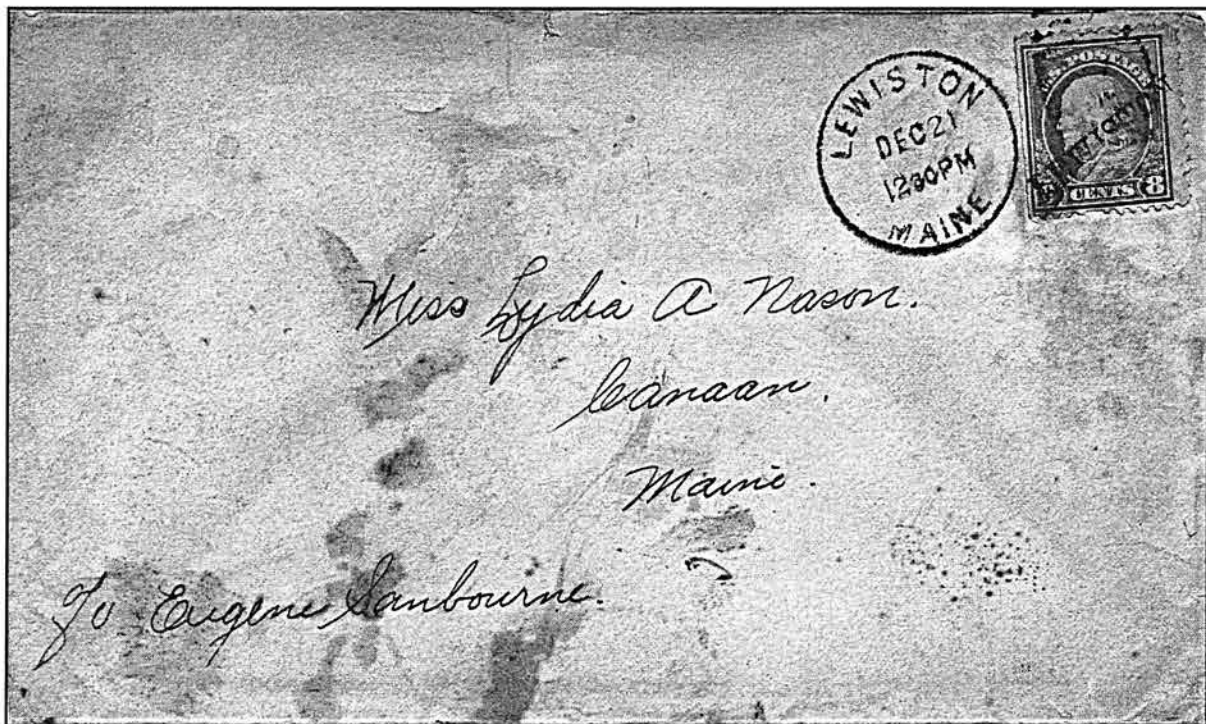 LEWISTON
DEC 21
12 30 PM
MAINE
U.S. POSTAGE
8 CENTS 8
Miss Lydia A Nason.
Canaan.
Maine.
To Eugene Sanbourne.